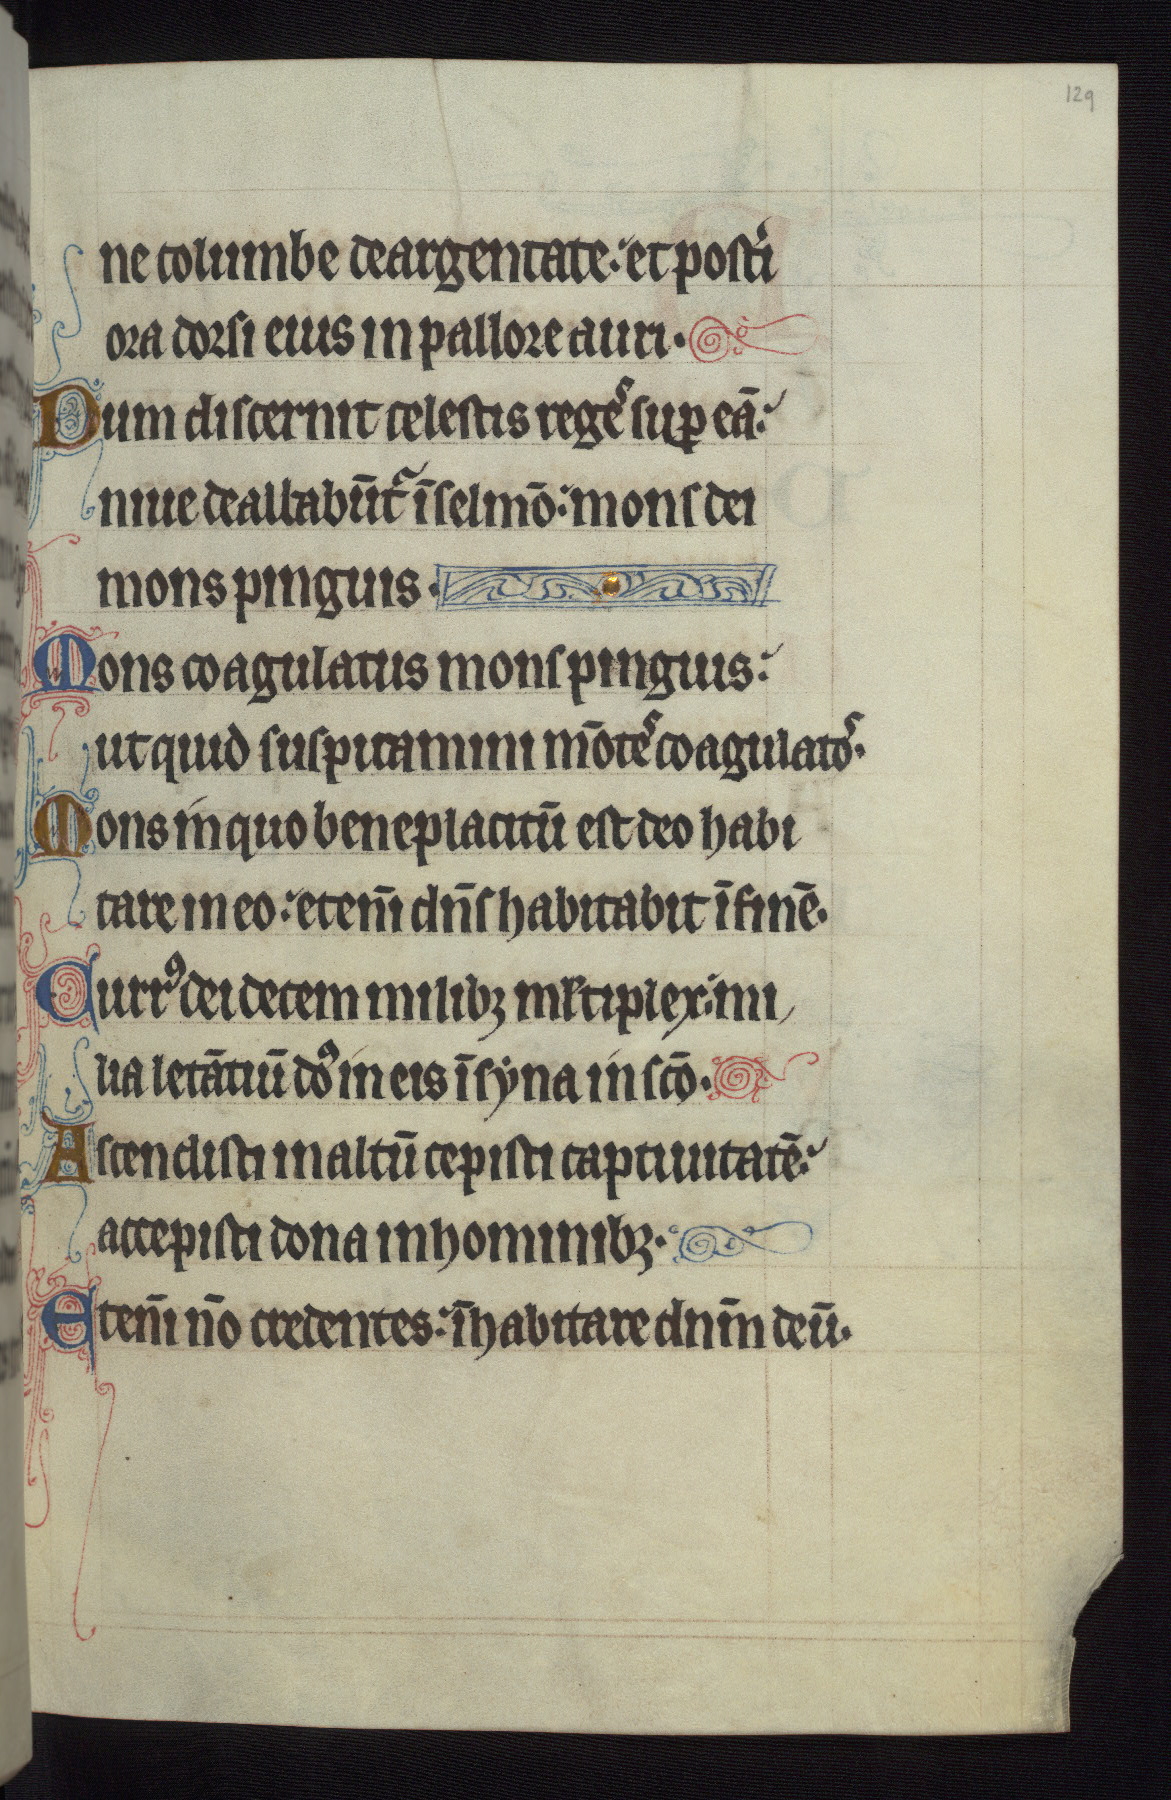 129
ne columbe deargentate: et post̾i
ora dorsi eius in pallore auri.
Dum discernit celestis reges suꝑ eā:
niue dealbabūt᷑ ī selmō: mons dei
mons pinguis.
Mons coagulatus mons pinguis:
ut quid suspicamini mōtes coagulatos.
Mons in quo beneplacitū est deo habi
tare in eo: eteni̅ dn̄s habitabit ī finē.
Currꝰ dei decem milibꝫ ml̄tiplex: mi
lia letātiū dōꝰ in eis ī syna in sc̄o.
Ascendisti in altū cepisti captiuitatē:
accepisti dona in hominibꝫ.
Eteni̅ nō credentes: īhabitare dnm̄ deū.